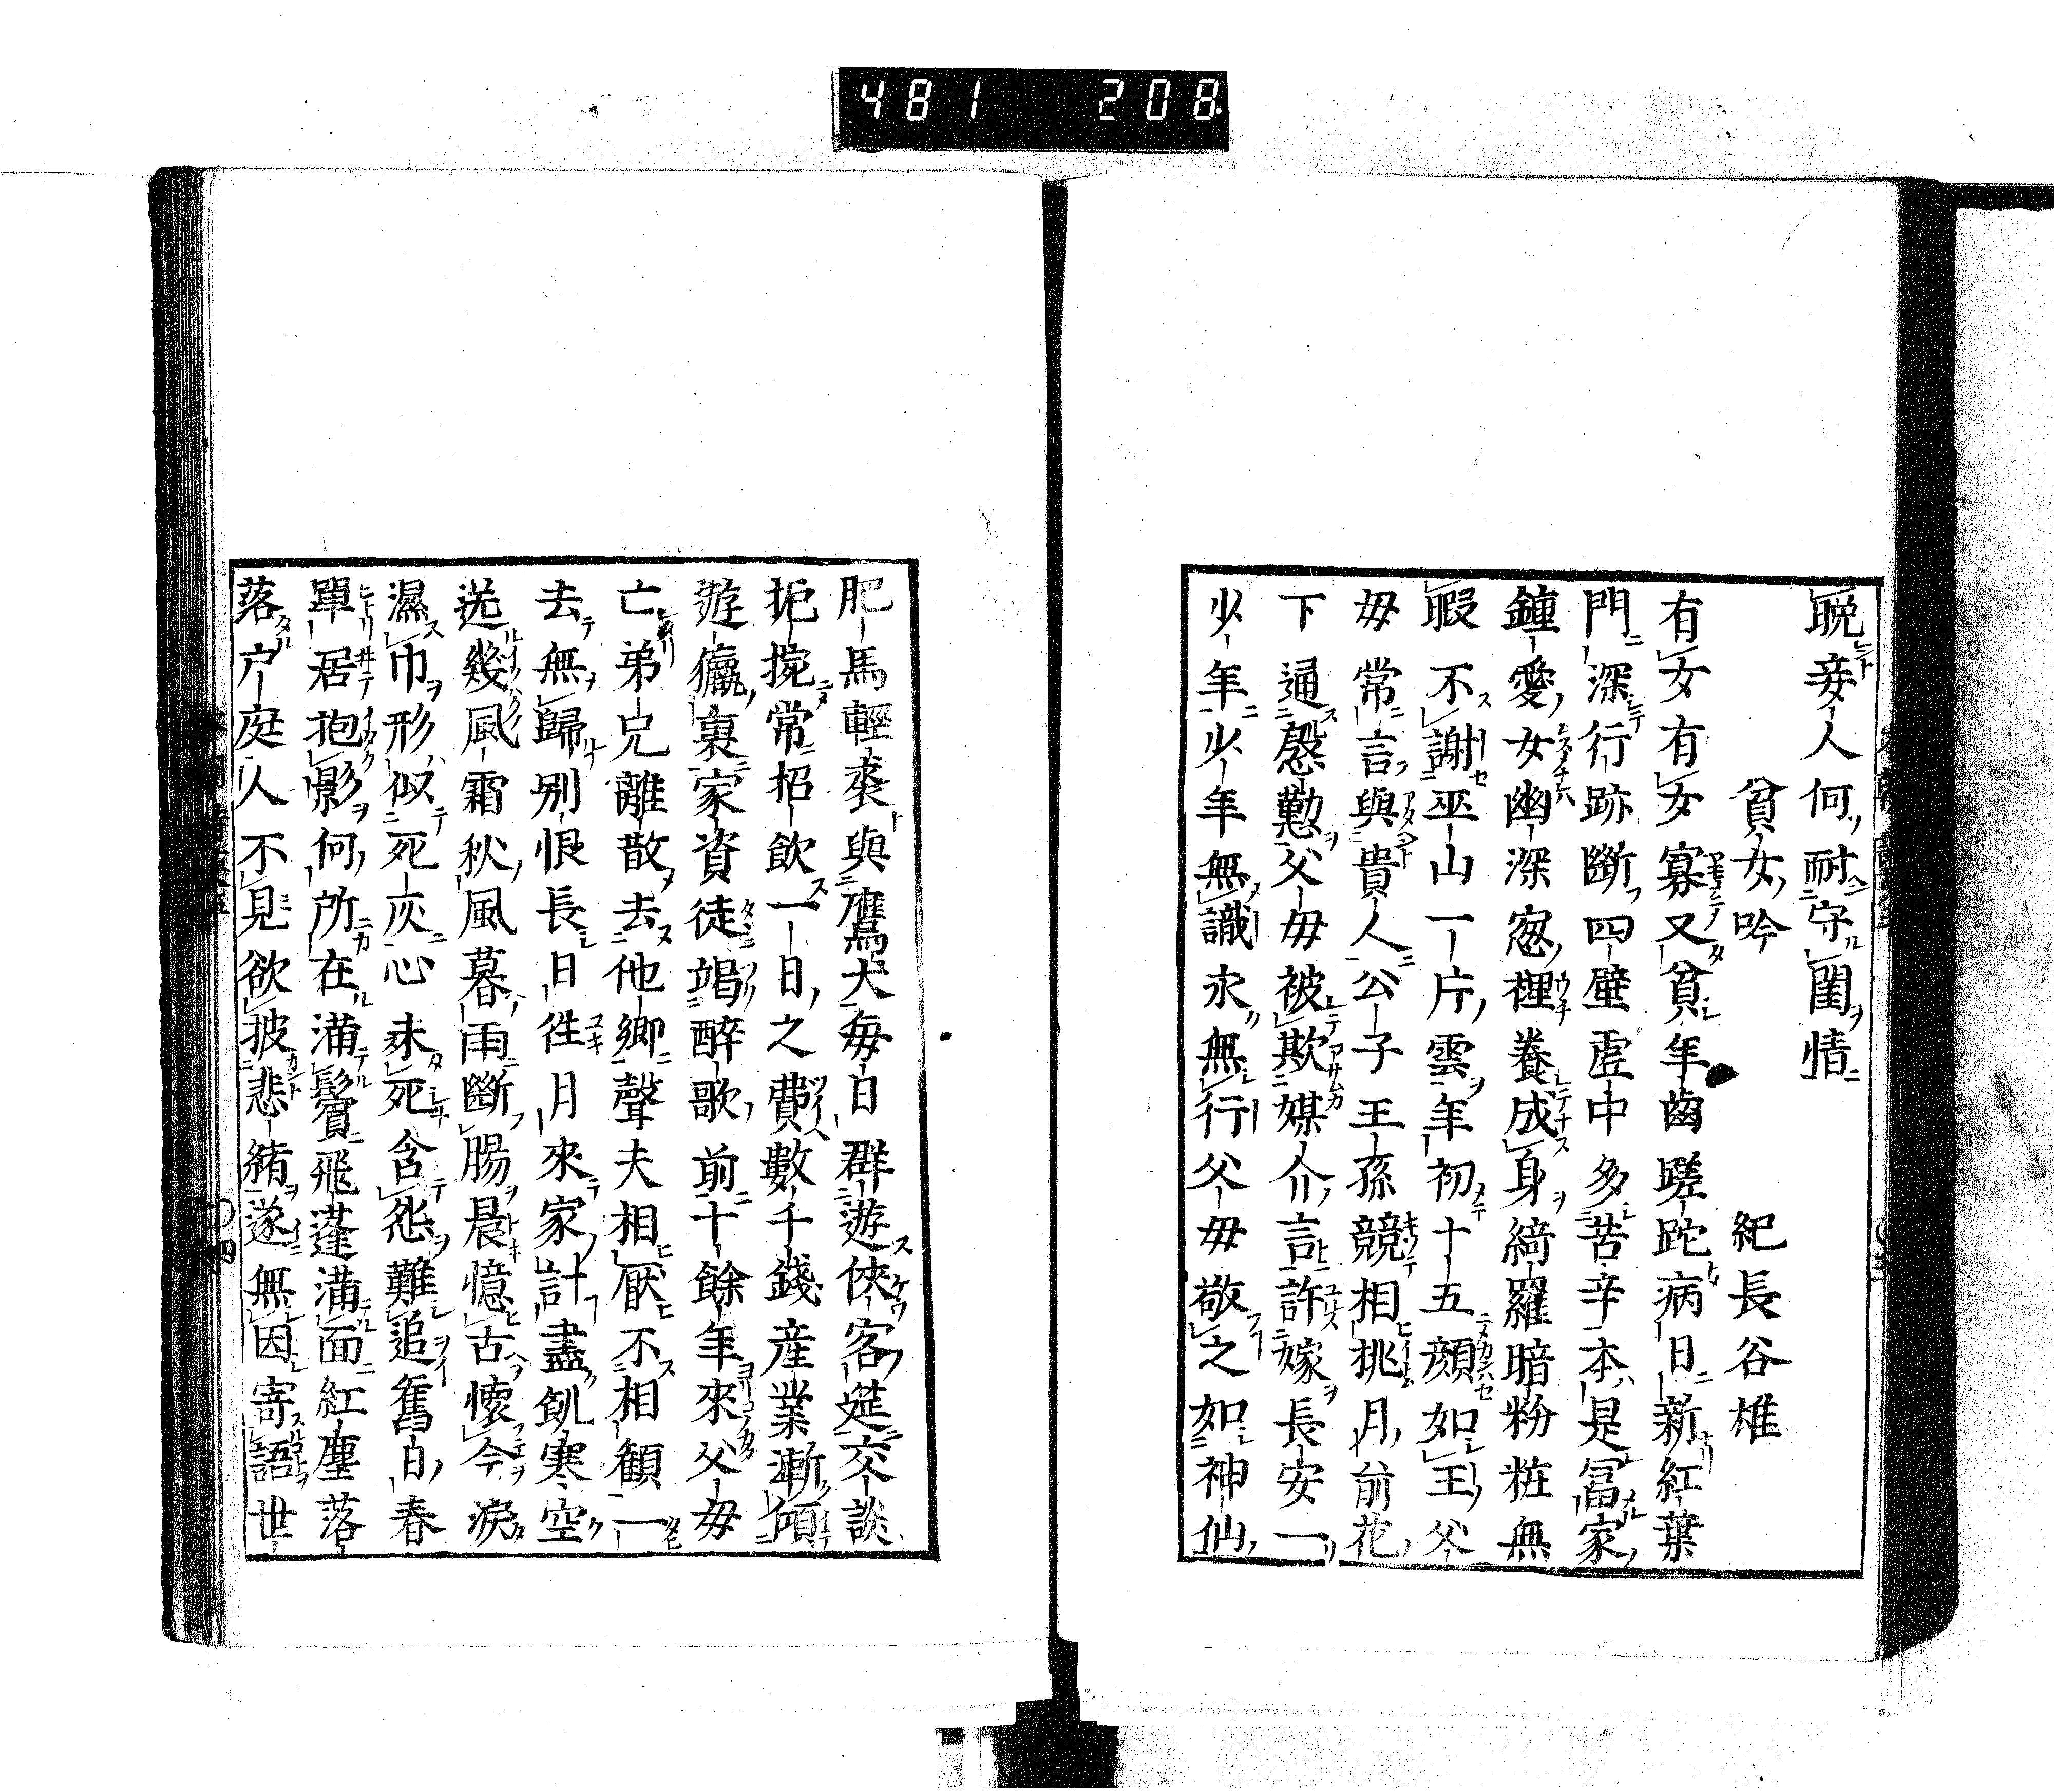 481 208
晩妾人何耐守閨情
貧女吟 紀長谷雄
有女有女寡又貧年齒蹉跎病日新紅葉
門深行跡斷四壁虛中多苦辛本是冨家
鍾愛女幽深窓裡養成身綺羅暗粉粧無
暇不謝巫山一片雲年初十五顔如玉父
母常言與貴人公子王孫競相挑月前花
下通慇懃父母被欺媒介言許嫁長安一
少年少年無識亦無行父母敬之如神仙
肥馬輕裘與鷹犬每日群遊俠客筵交談
扼捥常招飲一日之費數千錢産業漸傾
遊獵裏家資徒竭醉歌前十餘年來父母
亡弟兄離散去他郷聲夫相厭不相顧一
去無歸別恨長日徃月來家計盡飢寒空
送幾風霜秋風暮雨斷腸晨憶古懷今淚
濕巾形似死灰心未死含怨難追舊日春
單居抱影何所在滿鬢飛蓬滿面紅塵落
落戸庭人不見欲披悲緒遂無因寄語世